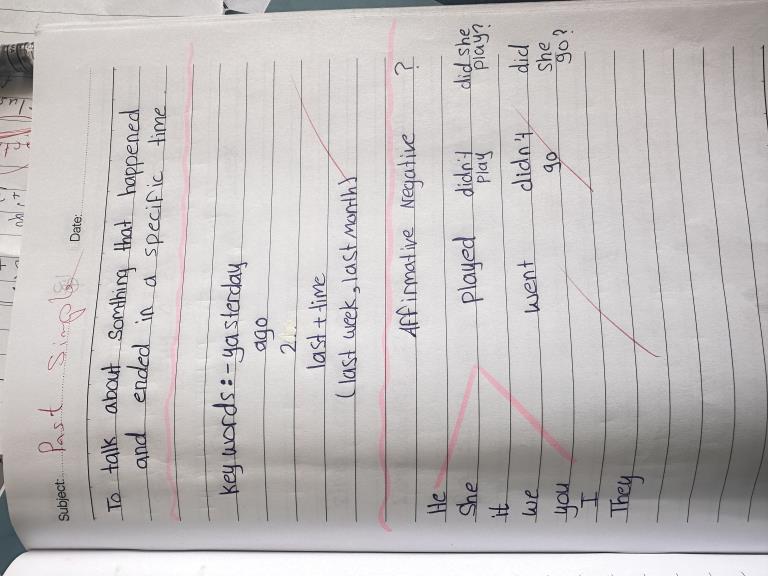 Subject: Past Simple
Date:
To talk about somthing that happened
and ended in a specific time
key words:- yasterday
ago
last + time
(last week, last month)
Affirmative Negative ?
He
She played didn't play did she play?
it
we went didn't go did she go?
you
I
They